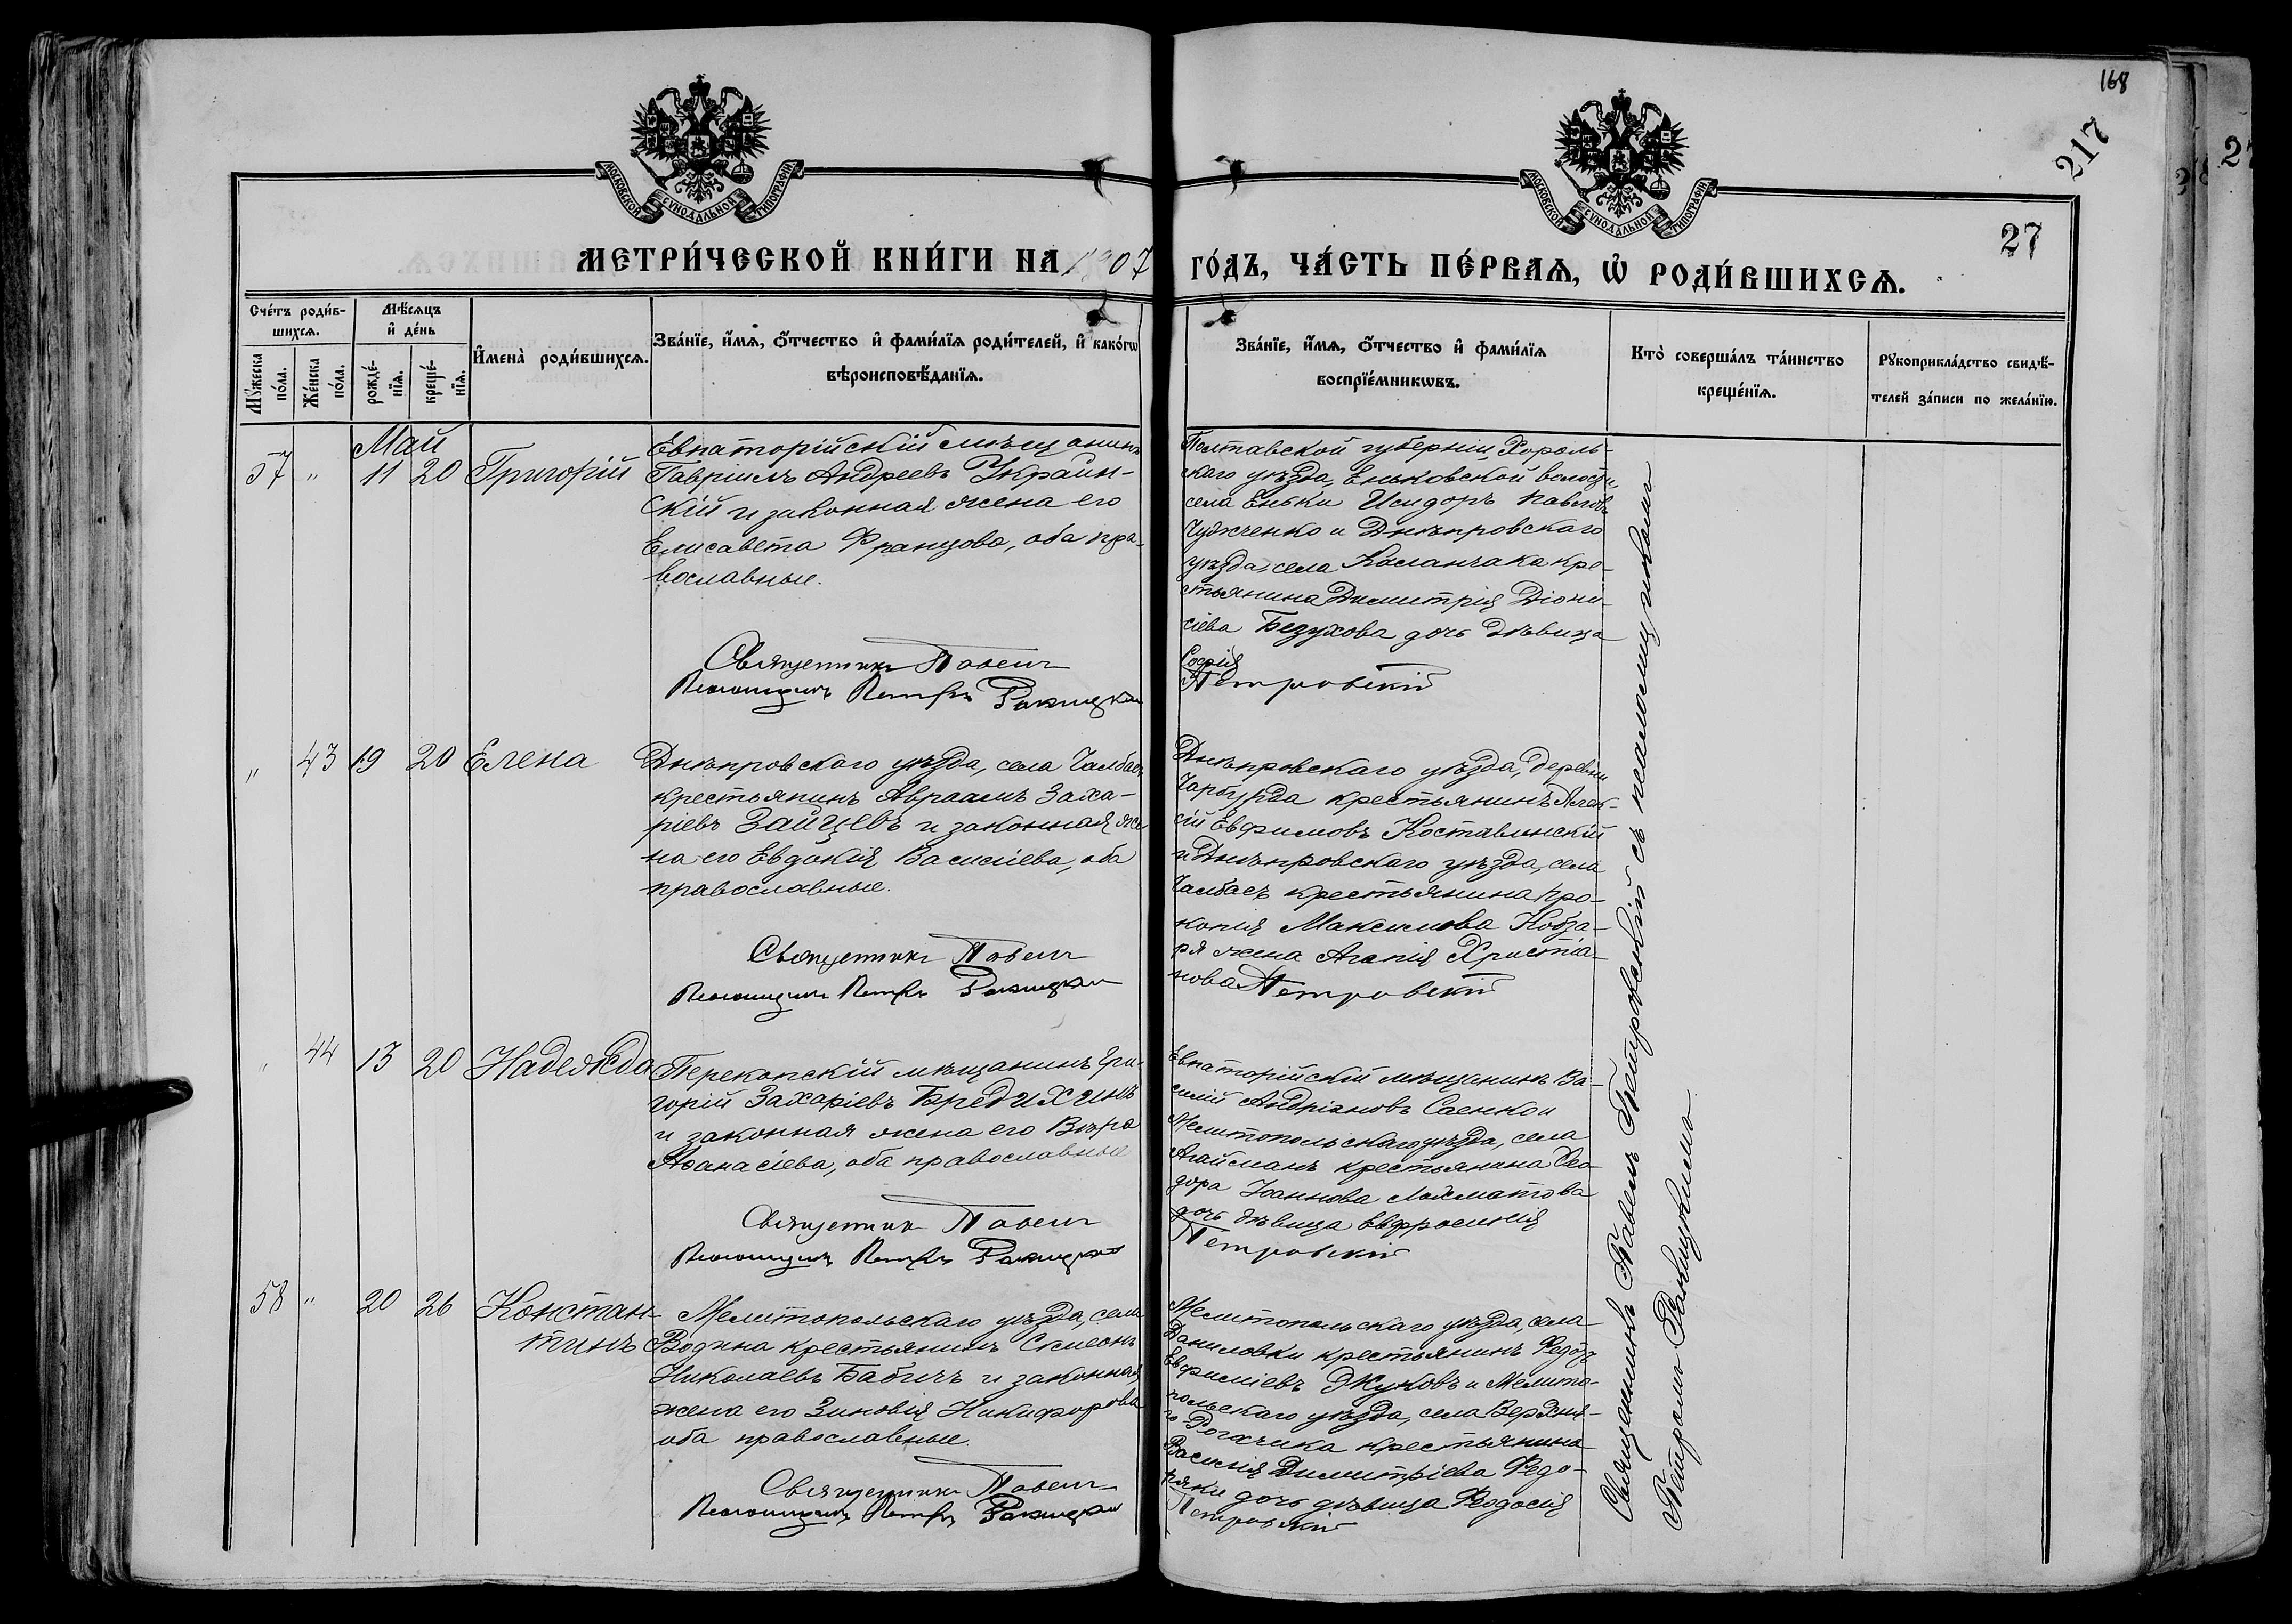 168
217
27
МОСКОВСКОЙ СѴНОДАЛЬНОЙ ТИПОГРАФІИ
МОСКОВСКОЙ СѴНОДАЛЬНОЙ ТИПОГРАФІИ
МЕТРИ́ЧЕСКОЙ КНИ́ГИ НА 1907 ГО́ДЪ, ЧА́СТЬ ПЕ́РВАѦ, Ѽ РОДИ́ВШИХСѦ.
Сче́тъ роди́вшихсѧ.
Мꙋ́жеска по́ла.
Же́нска по́ла.
Мѣ́сѧцъ и҆ де́нь
рожде́нїѧ.
креще́нїѧ.
И҆мена̀ роди́вшихсѧ.
Зва́нїе, и҆́мѧ, ѻ҆́тчество и҆ фами́лїѧ роди́телей, и҆ како́гѡ
вѣроисповѣ́данїѧ.
Зва́нїе, и҆́мѧ, ѻ҆́тчество и҆ фами́лїѧ
воспрїе́мникѡвъ.
Кто̀ соверша́лъ та́инство
креще́нїѧ.
Рꙋкоприкла́дство свидѣ́-
телей за́писи по жела́нїю.
Май
57 " 11 20 Григорій
Евпаторійскій мѣщанинъ
Гавріилъ Андреевъ Украин-
скій и законная жена его
Елисавета Францова, оба пра-
вославные.
Священникъ Павелъ
Псаломщикъ Петръ Ракицкій
Полтавской губерніи, Хороль-
скаго уѣзда, Еньковской волости,
села Еньки Исидоръ Павловъ
Чудженко и Днѣпровскаго
уѣзда, села Каланчака кре-
стьянина Димитрія Діони-
сіева Безухова дочь дѣвица
Софія
Петровскій
" 43 19 20 Елена
Днѣпровскаго уѣзда, села Чалбасъ
крестьянинъ Авраамъ Заха-
ріевъ Зайцевъ и законная же-
на его Евдокія Василіева, оба
православные.
Священникъ Павелъ
Псаломщикъ Петръ Ракицкій
Днѣпровскаго уѣзда, деревни
Чарбурда крестьянинъ Алек-
сій Евфимовъ Коставинскій
и Днѣпровскаго уѣзда, села
Чалбасъ крестьянина Про-
копія Максимова Кобза-
ря жена Агапія Христіа-
нова Петровскій
" 44 13 20 Надежда
Перекопскій мѣщанинъ Гри-
горій Захаріевъ Бредихинъ
и законная жена его Вѣра
Аѳанасіева, оба православные
Священникъ Павелъ
Псаломщикъ Петръ Ракицкій
Евпаторійскій мѣщанинъ Ва-
силій Андріановъ Саенко и
Мелитопольскаго уѣзда, села
Агайманъ крестьянина Ѳео-
дора Іоаннова Лахматова
дочь дѣвица Евфросинія
Петровскій
58 " 20 26 Констан-
тинъ
Мелитопольскаго уѣзда, села
Водяна крестьянинъ Симеонъ
Николаевъ Бабичъ и законная
жена его Зиновія Никифорова
оба православные.
Священникъ Павелъ
Псаломщикъ Петръ Ракицкій
Мелитопольскаго уѣзда, села
Даниловки крестьянинъ Ѳедоръ
Евфиміевъ Жуковъ и Мелито-
польскаго уѣзда, села Верхня-
го Рогачика крестьянина
Василія Димитріева Федо-
ряки дочь дѣвица Ѳеодосія
Петровскій
Священникъ Павелъ Петровскій съ псаломщикомъ
Петромъ Ракицкимъ.